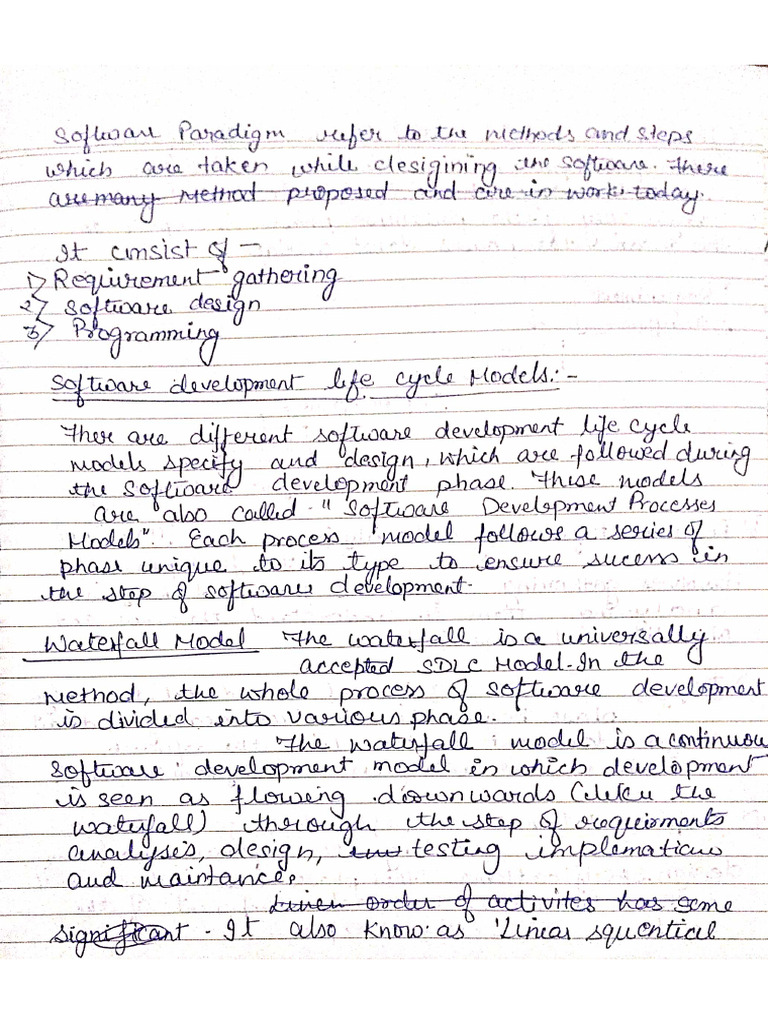 Software Paradigm refer to the methods and steps
which are taken while desigining the software. There
are many Method proposed and are in work today.
It cinsist of –
1) Requirement gathering
2) Software design
3) Programming
Software development life cycle Models:-
Ther are different software development life cycle
models specify and design, which are followed during
the software development phase. These models
are also called "Software Development Processes
Models". Each process model follows a series of
phase unique to its type to ensure sucess in
the step of software development.
Waterfall Model The waterfall is a universally
accepted SDLC Model. In the
Method, the whole process of software development
is divided into various phase.
The waterfall model is a continuou
software development model in which development
is seen as flowing downwards (like the
waterfall) through the step of requirments
analysis, design, testing implemation
and maintance.
Linen order of activites has some
significant. It also know as 'Linear squential